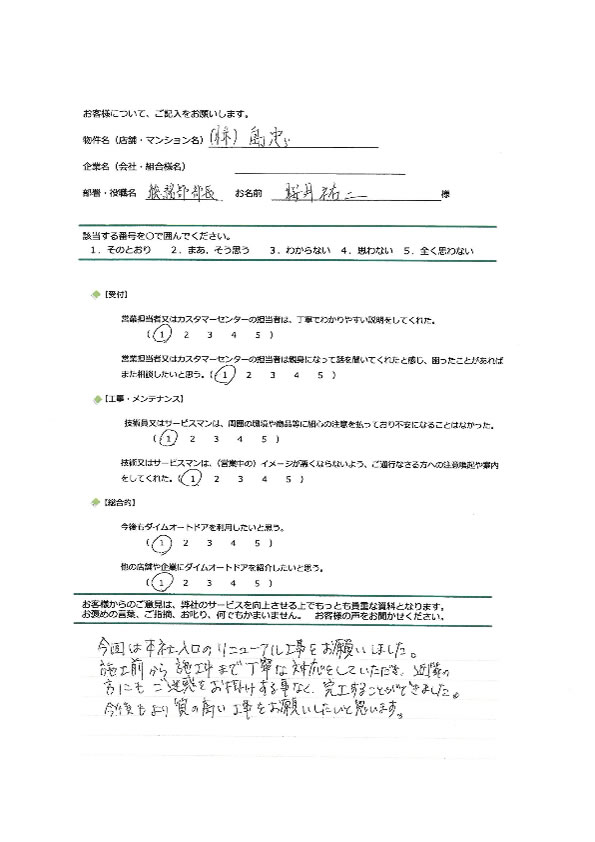 お客様について、ご記入をお願いします。
物件名（店舗・マンション名） (株) 島忠
企業名（会社・組合様名）
部署・役職名 総務部部長 お名前 桜井 祐二 様
該当する番号を○で囲んでください。
1．そのとおり 2．まあ、そう思う 3．わからない 4．思わない 5．全く思わない
【受付】
営業担当者又はカスタマーセンターの担当者は、丁寧でわかりやすい説明をしてくれた。
( 1 2 3 4 5 )
営業担当者又はカスタマーセンターの担当者は親身になって話を聞いてくれたと感じ、困ったことがあれば
また相談したいと思う。( 1 2 3 4 5 )
【工事・メンテナンス】
技術員又はサービスマンは、周囲の環境や商品等に細心の注意を払っており不安になることはなかった。
( 1 2 3 4 5 )
技術又はサービスマンは、（営業中の）イメージが悪くならないよう、ご通行なさる方への注意喚起や案内
をしてくれた。( 1 2 3 4 5 )
【総合的】
今後もダイムオートドアを利用したいと思う。
( 1 2 3 4 5 )
他の店舗や企業にダイムオートドアを紹介したいと思う。
( 1 2 3 4 5 )
お客様からのご意見は、弊社のサービスを向上させる上でもっとも貴重な資料となります。
お褒めの言葉、ご指摘、お叱り、何でもかまいません。 お客様の声をお聞かせください。
今回は本社入口のリニューアル工事をお願いしました。
施工前から施工中まで丁寧な対応をしていただき、近隣の
方にもご迷惑をお掛けする事なく、完工することができました。
今後もより質の高い工事をお願いしたいと思います。